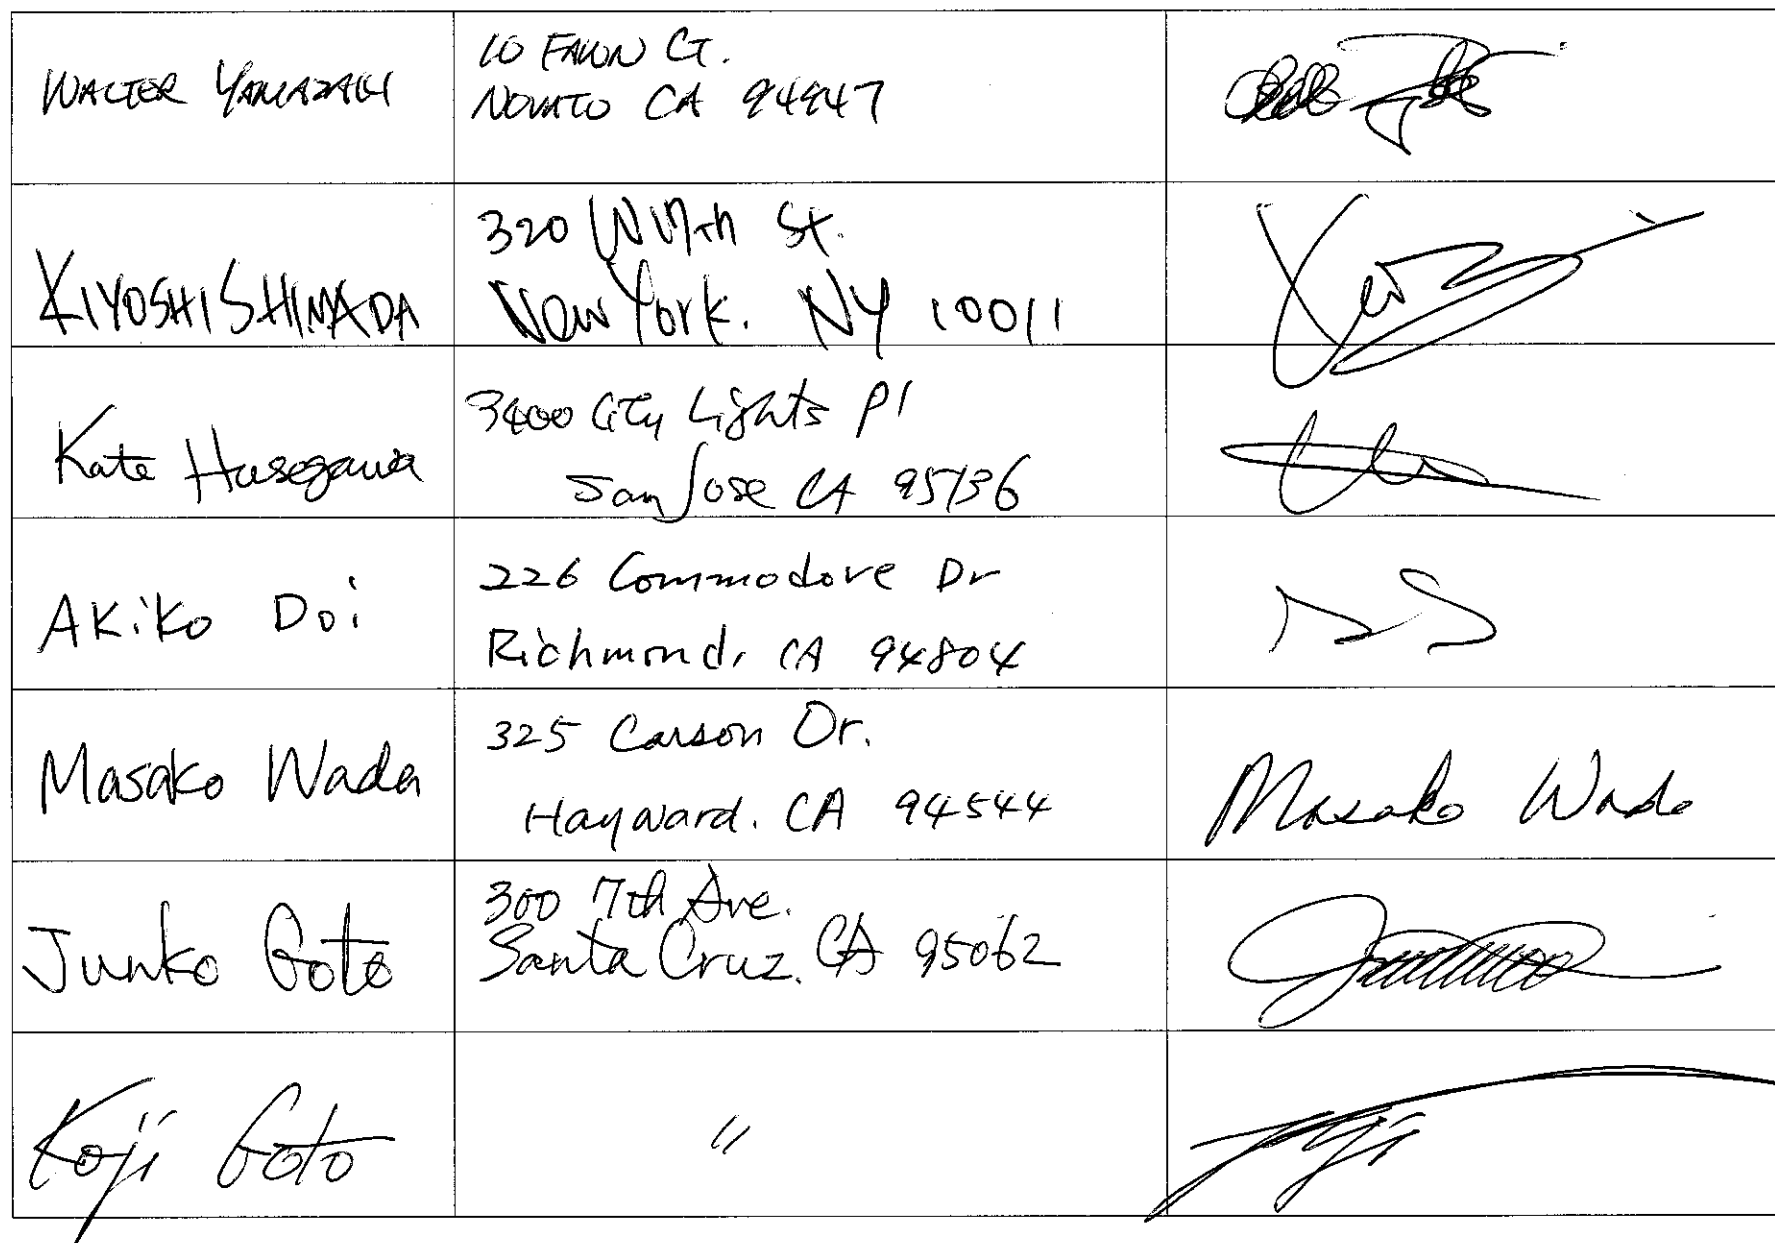 WALTER YAMAZAKI
10 FAWN CT.
NOVATO CA 94947
KIYOSHI SHIMADA
320 W 19th St.
New York. NY 10011
Kate Hasegawa
3400 City Lights Pl
San Jose CA 95136
Akiko Doi
226 Commodore Dr
Richmond, CA 94804
Masako Wada
325 Carson Dr.
Hayward. CA 94544
Masako Wada
Junko Goto
300 7th Ave.
Santa Cruz. CA 95062
Koji Goto
"